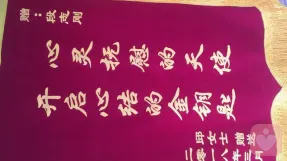 赠：段志刚
心灵抚慰的天使
开启心结的金钥匙
邱女士 赠送
二零一八年三月